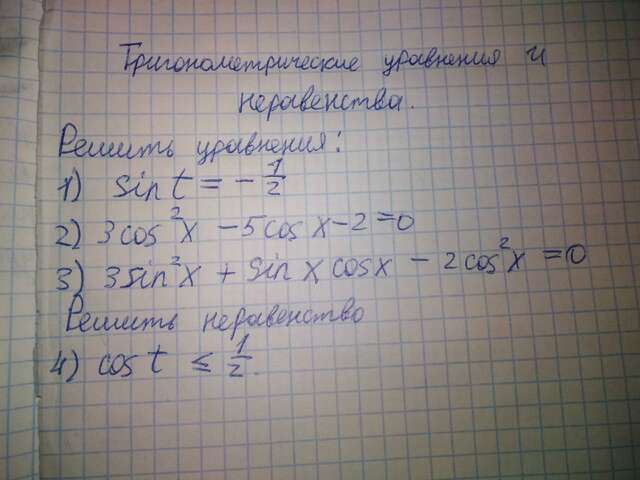 Тригонометрические уравнения и
неравенства.
Решить уравнения:
1) sin t = - 1/2
2) 3cos²x - 5cos x - 2 = 0
3) 3sin²x + sin x cos x - 2cos²x = 0
Решить неравенство
4) cos t ≤ 1/2.